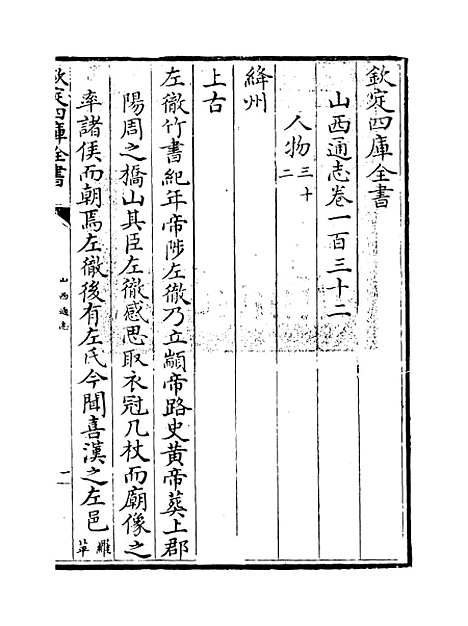 欽定四庫全書
山西通志卷一百三十二
人物三十二
絳州
上古
左徹竹書紀年帝陟左徹乃立顓帝路史黄帝葬上郡
陽周之橋山其臣左徹感思取衣冠几杖而廟像之
率諸侯而朝焉左徹後有左氏今聞喜漢之左邑羅苹
欽定四庫全書
山西通志
一